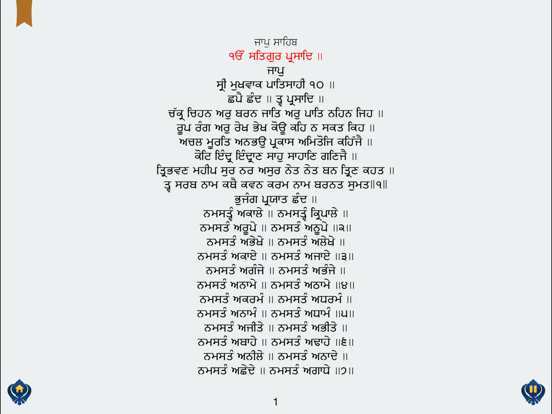 ਜਾਪੁ ਸਾਹਿਬ
ੴ ਸਤਿਗੁਰ ਪ੍ਰਸਾਦਿ ॥
ਜਾਪੁ
ਸ੍ਰੀ ਮੁਖਵਾਕ ਪਾਤਿਸਾਹੀ ੧੦ ॥
ਛਪੈ ਛੰਦ ॥ ਤ੍ਵ ਪ੍ਰਸਾਦਿ ॥
ਚੱਕ੍ਰ ਚਿਹਨ ਅਰੁ ਬਰਨ ਜਾਤਿ ਅਰੁ ਪਾਤਿ ਨਹਿਨ ਜਿਹ ॥
ਰੂਪ ਰੰਗ ਅਰੁ ਰੇਖ ਭੇਖ ਕੋਊ ਕਹਿ ਨ ਸਕਤ ਕਿਹ ॥
ਅਚਲ ਮੂਰਤਿ ਅਨਭਉ ਪ੍ਰਕਾਸ ਅਮਿਤੋਜਿ ਕਹਿੱਜੈ ॥
ਕੋਟਿ ਇੰਦ੍ਰ ਇੰਦ੍ਰਾਣ ਸਾਹੁ ਸਾਹਾਣਿ ਗਣਿਜੈ ॥
ਤ੍ਰਿਭਵਣ ਮਹੀਪ ਸੁਰ ਨਰ ਅਸੁਰ ਨੇਤ ਨੇਤ ਬਨ ਤ੍ਰਿਣ ਕਹਤ ॥
ਤ੍ਵ ਸਰਬ ਨਾਮ ਕਥੈ ਕਵਨ ਕਰਮ ਨਾਮ ਬਰਨਤ ਸੁਮਤ॥੧॥
ਭੁਜੰਗ ਪ੍ਰਯਾਤ ਛੰਦ ॥
ਨਮਸਤ੍ਵੰ ਅਕਾਲੇ ॥ ਨਮਸਤ੍ਵੰ ਕ੍ਰਿਪਾਲੇ ॥
ਨਮਸਤੰ ਅਰੂਪੇ ॥ ਨਮਸਤੰ ਅਨੂਪੇ ॥੨॥
ਨਮਸਤੰ ਅਭੇਖੇ ॥ ਨਮਸਤੰ ਅਲੇਖੇ ॥
ਨਮਸਤੰ ਅਕਾਏ ॥ ਨਮਸਤੰ ਅਜਾਏ ॥੩॥
ਨਮਸਤੰ ਅਗੰਜੇ ॥ ਨਮਸਤੰ ਅਭੰਜੇ ॥
ਨਮਸਤੰ ਅਨਾਮੇ ॥ ਨਮਸਤੰ ਅਠਾਮੇ ॥੪॥
ਨਮਸਤੰ ਅਕਰਮੰ ॥ ਨਮਸਤੰ ਅਧਰਮੰ ॥
ਨਮਸਤੰ ਅਨਾਮੰ ॥ ਨਮਸਤੰ ਅਧਾਮੰ ॥੫॥
ਨਮਸਤੰ ਅਜੀਤੇ ॥ ਨਮਸਤੰ ਅਭੀਤੇ ॥
ਨਮਸਤੰ ਅਬਾਹੇ ॥ ਨਮਸਤੰ ਅਢਾਹੇ ॥੬॥
ਨਮਸਤੰ ਅਨੀਲੇ ॥ ਨਮਸਤੰ ਅਨਾਦੇ ॥
ਨਮਸਤੰ ਅਛੇਦੇ ॥ ਨਮਸਤੰ ਅਗਾਧੇ ॥੭॥
1